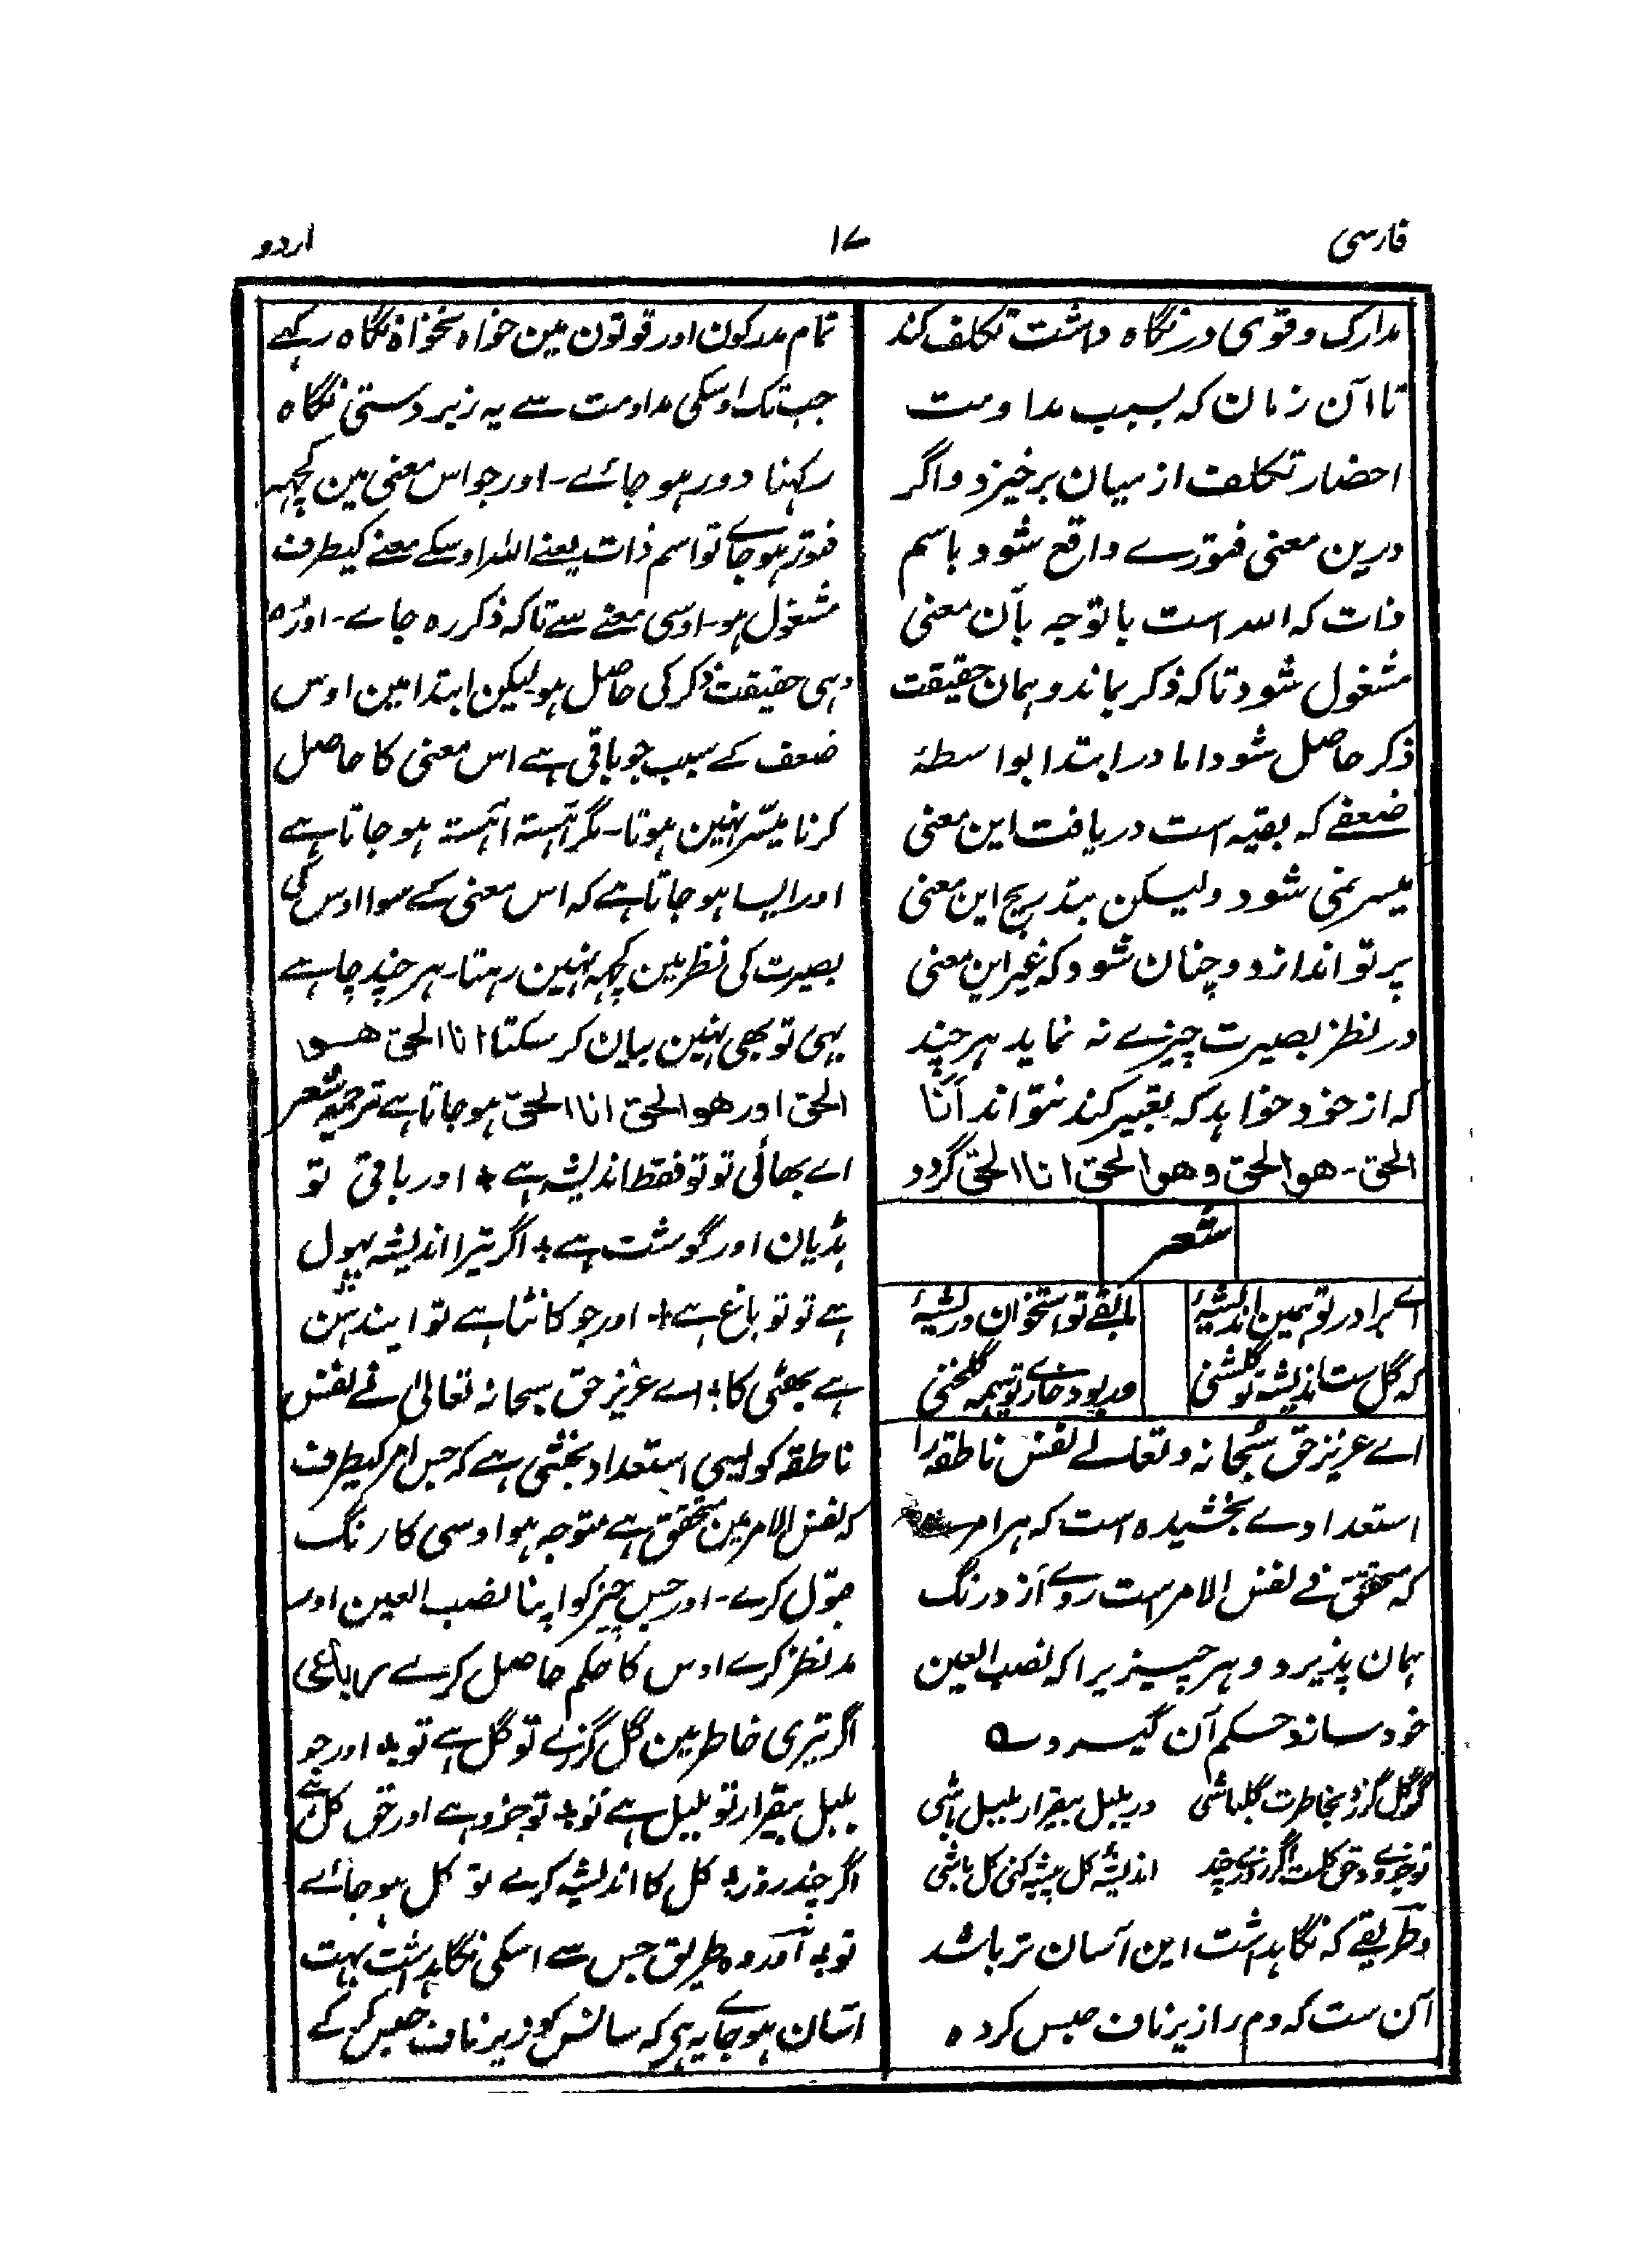 فارسی
۱۷
اردو
مدارک و قوی در نگاه داشت تکلف کند
تا آن زمان که بسبب مداومت
احضار تکلف از میان برخیزد و اگر
درین معنی فتورے واقع شود باسم
ذات که الله است با توجه بآن معنی
مشغول شود تا که ذکر بماند و همان حقیقت
ذکر حاصل شود اما در ابتدا بواسطۂ
ضعفے که بقیه است دریافت این معنی
میسر نمی شود ولیکن بتدریج این معنی
پرتو اندازد و چنان شود که غیر این معنی
در نظر بصیرت چیزے نه نماید هرچند
که از خود خواهد که تعبیر کند نتواند اَنَا
الحق - هو الحق و هو الحق انا الحق گردد
شعر
اے برادر تو همین اندیشۂ
مابقے تو استخوان و ریشۂ
که گل ست اندیشۂ تو گلشنی
ور بود خارے تو هیمه گلخنی
اے عزیز حق سُبحانه و تعالے نفس ناطقه را
استعدادے بخشیده است که هر امر
که محقق فے نفس الامر ست روے آرد رنگ
همان پذیرد و هر چیزیرا که نصب العین
خود سازد حکم آن گیرد ؎
گر گل گزرد بخاطرت گل باشی
ور بلبل بیقرار بلبل باشی
تو جزوے و حق کل ست اگر روزے چند
اندیشۂ کل پیشه کنی کل باشی
و طریقے که نگاہداشت این آسان تر باشد
آن ست که دم را زیر ناف حبس کرده
تمام مدرکون اور قوتون مین خواہ نخواہ نگاہ رکہے
جب تک اوسکی مداومت سے یہ زبردستی نگاہ
رکہنا دور ہو جائے - اور جو اس معنی مین کچہہ
فتور ہو جاے تو اسم ذات یعنے اللہ اوسکے معنے کیطرف
مشغول ہو - اوسی معنے سے تاکہ ذکر رہ جاے - اور وہ
وہی حقیقت ذکر کی حاصل ہو لیکن ابتدا مین اوس
ضعف کے سبب جو باقی ہے اس معنی کا حاصل
کرنا میسّر نہین ہوتا - مگر آہستہ آہستہ ہو جاتا ہے
اور ایسا ہو جاتا ہے کہ اس معنی کے سوا اوس کی
بصیرت کی نظر مین کچہہ نہین رہتا - ہر چند چاہے
یہی تو بھی نہین بیان کر سکتا انا الحق هو
الحق اور هو الحق انا الحق ہو جاتا ہے ترجمہ شعر
اے بھائی تو تو فقط اندیشہ ہے + اور باقی تو
ہڈیان اور گوشت ہے + اگر تیرا اندیشہ پہول
ہے تو تو باغ ہے + اور جو کانٹا ہے تو ایندہن
ہے بھٹی کا + اے عزیز حق سبحانہ تعالیٰ نے نفس
ناطقہ کو ایسی استعداد بخشی ہے کہ جس امر کیطرف
کہ نفس الامر مین متحقق ہے متوجہ ہو اوسی کا رنگ
قبول کرے - اور جس چیز کو اپنا نصب العین اور
مد نظر کرے اوس کا حکم حاصل کرے رباعی
اگر تیری خاطر مین گل گزرے تو گل ہے تو + اور جو
بلبل بیقرار تو بلبل ہے تو + تو جزو ہے اور حق کل ہے
اگر چند روز + کل کا اندیشہ کرے تو کل ہو جائے
تو + اور وہ طریق جس سے اسکی نگاہداشت بہت
آسان ہو جاے یہ ہی کہ سانس کو زیر ناف حبس کر کے